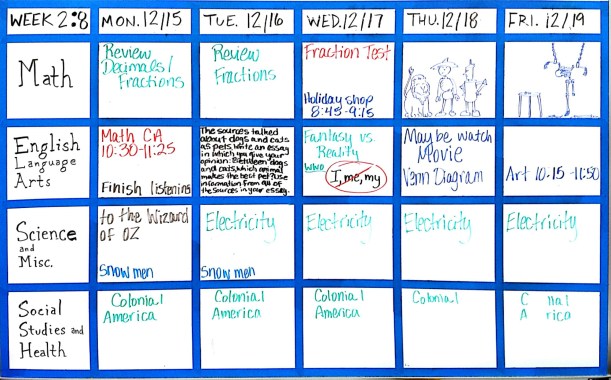 WEEK 2:8
MON. 12/15
TUE. 12/16
WED. 12/17
THU. 12/18
FRI. 12/19
Math
Review
Decimals/
Fractions
Review
Fractions
Fraction Test
Holiday shop
8:45-9:15
English
Language
Arts
Math CA
10:30-11:25
Finish listening
The sources talked
about dogs and cats
as pets. Write an essay
in which you give your
opinion: Between dogs
and cats, which animal
makes the best pet? Use
information from all of
the sources in your essay.
Fantasy vs.
Reality
who
I, me, my
Maybe watch
Movie
Venn Diagram
Art 10:15 -11:00
Science
and
Misc.
to the Wizard
of OZ
Snowmen
Electricity
Snowmen
Electricity
Electricity
Electricity
Social
Studies and
Health
Colonial
America
Colonial
America
Colonial
America
Colonial
C nial
A rica